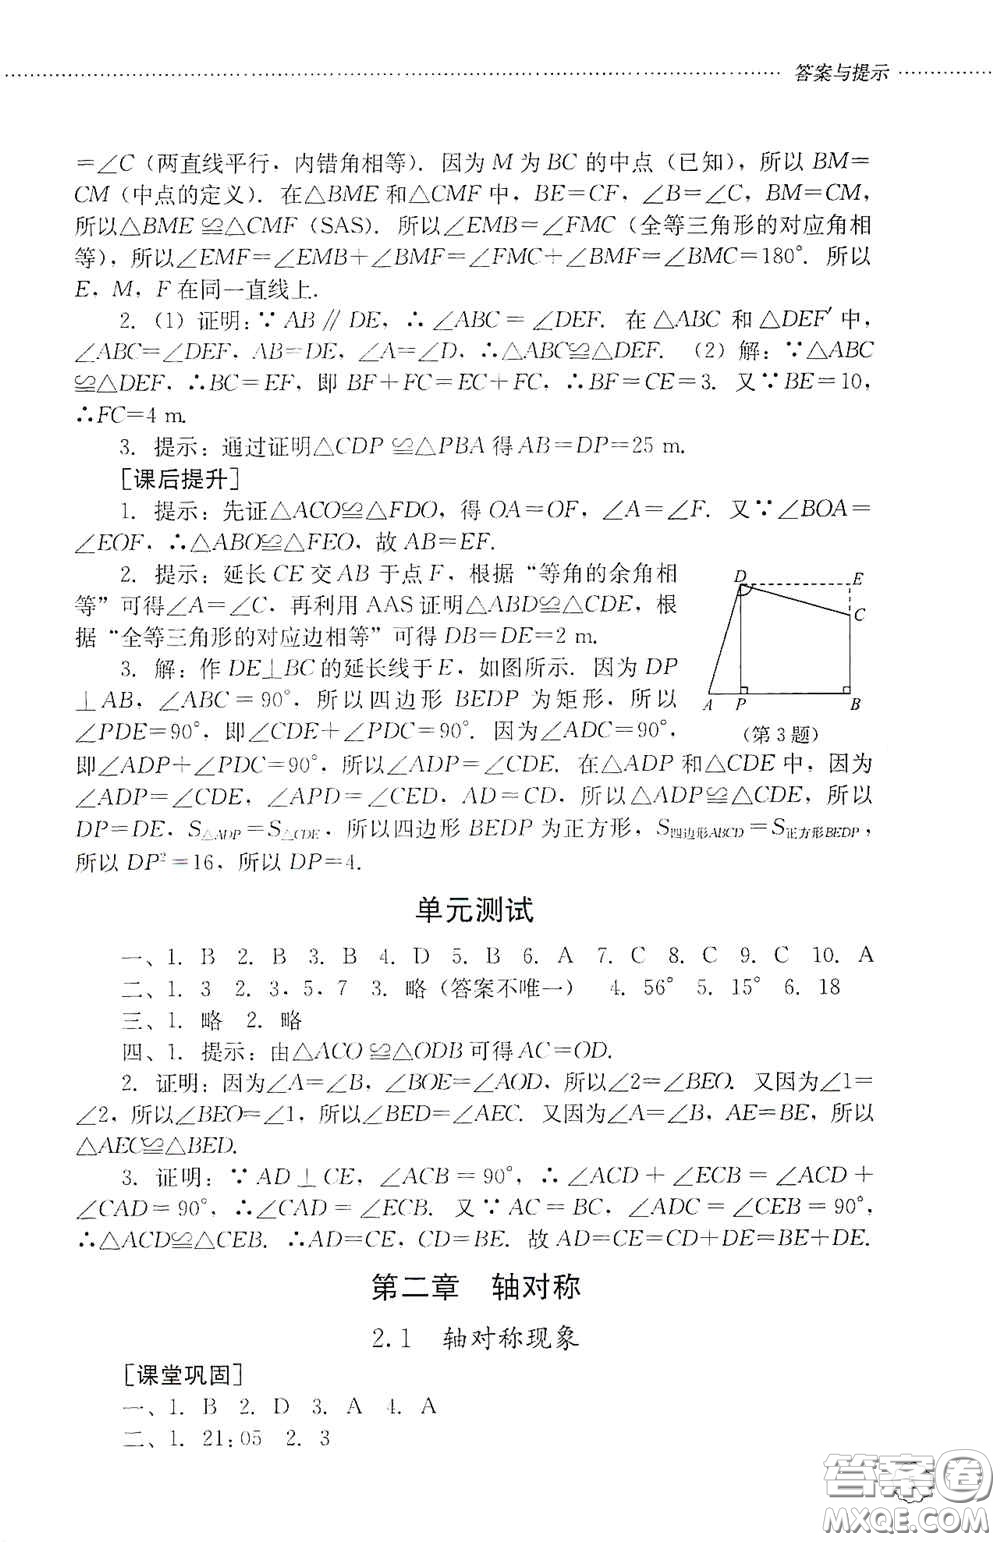 答案与提示
=∠C（两直线平行，内错角相等）. 因为 M 为 BC 的中点（已知），所以 BM=
CM（中点的定义）. 在△BME 和△CMF 中，BE=CF，∠B=∠C，BM=CM，
所以△BME≌△CMF（SAS）. 所以∠EMB=∠FMC（全等三角形的对应角相
等），所以∠EMF=∠EMB+∠BMF=∠FMC+∠BMF=∠BMC=180°. 所以
E，M，F 在同一直线上.
2. （1）证明：∵AB∥DE，∴∠ABC=∠DEF. 在△ABC 和△DEF 中，
∠ABC=∠DEF，AB=DE，∠A=∠D，∴△ABC≌△DEF. （2）解：∵△ABC
≌△DEF，∴BC=EF，即 BF+FC=EC+FC，∴BF=CE=3. 又∵BE=10，
∴FC=4 m.
3. 提示：通过证明△CDP≌△PBA 得 AB=DP=25 m.
[课后提升]
1. 提示：先证△ACO≌△FDO，得 OA=OF，∠A=∠F. 又∵∠BOA=
∠EOF，∴△ABO≌△FEO，故 AB=EF.
2. 提示：延长 CE 交 AB 于点 F，根据“等角的余角相
等”可得∠A=∠C，再利用 AAS 证明△ABD≌△CDE，根
据“全等三角形的对应边相等”可得 DB=DE=2 m.
3. 解：作 DE⊥BC 的延长线于 E，如图所示. 因为 DP
⊥AB，∠ABC=90°，所以四边形 BEDP 为矩形，所以
∠PDE=90°，即∠CDE+∠PDC=90°. 因为∠ADC=90°，
即∠ADP+∠PDC=90°，所以∠ADP=∠CDE. 在△ADP 和△CDE 中，因为
∠ADP=∠CDE，∠APD=∠CED，AD=CD，所以△ADP≌△CDE，所以
DP=DE，S△ADP=S△CDE，所以四边形 BEDP 为正方形，S四边形ABCD=S正方形BEDP，
所以 DP²=16，所以 DP=4.
D
E
C
A
P
B
（第 3 题）
单元测试
一、1. B 2. B 3. B 4. D 5. B 6. A 7. C 8. C 9. C 10. A
二、1. 3 2. 3，5，7 3. 略（答案不唯一） 4. 56° 5. 15° 6. 18
三、1. 略 2. 略
四、1. 提示：由△ACO≌△ODB 可得 AC=OD.
2. 证明：因为∠A=∠B，∠BOE=∠AOD，所以∠2=∠BEO. 又因为∠1=
∠2，所以∠BEO=∠1，所以∠BED=∠AEC. 又因为∠A=∠B，AE=BE，所以
△AEC≌△BED.
3. 证明：∵AD⊥CE，∠ACB=90°，∴∠ACD+∠ECB=∠ACD+
∠CAD=90°，∴∠CAD=∠ECB. 又∵AC=BC，∠ADC=∠CEB=90°，
∴△ACD≌△CEB. ∴AD=CE，CD=BE. 故 AD=CE=CD+DE=BE+DE.
第二章 轴对称
2.1 轴对称现象
[课堂巩固]
一、1. B 2. D 3. A 4. A
二、1. 21:05 2. 3
答案圈
MXQE.COM